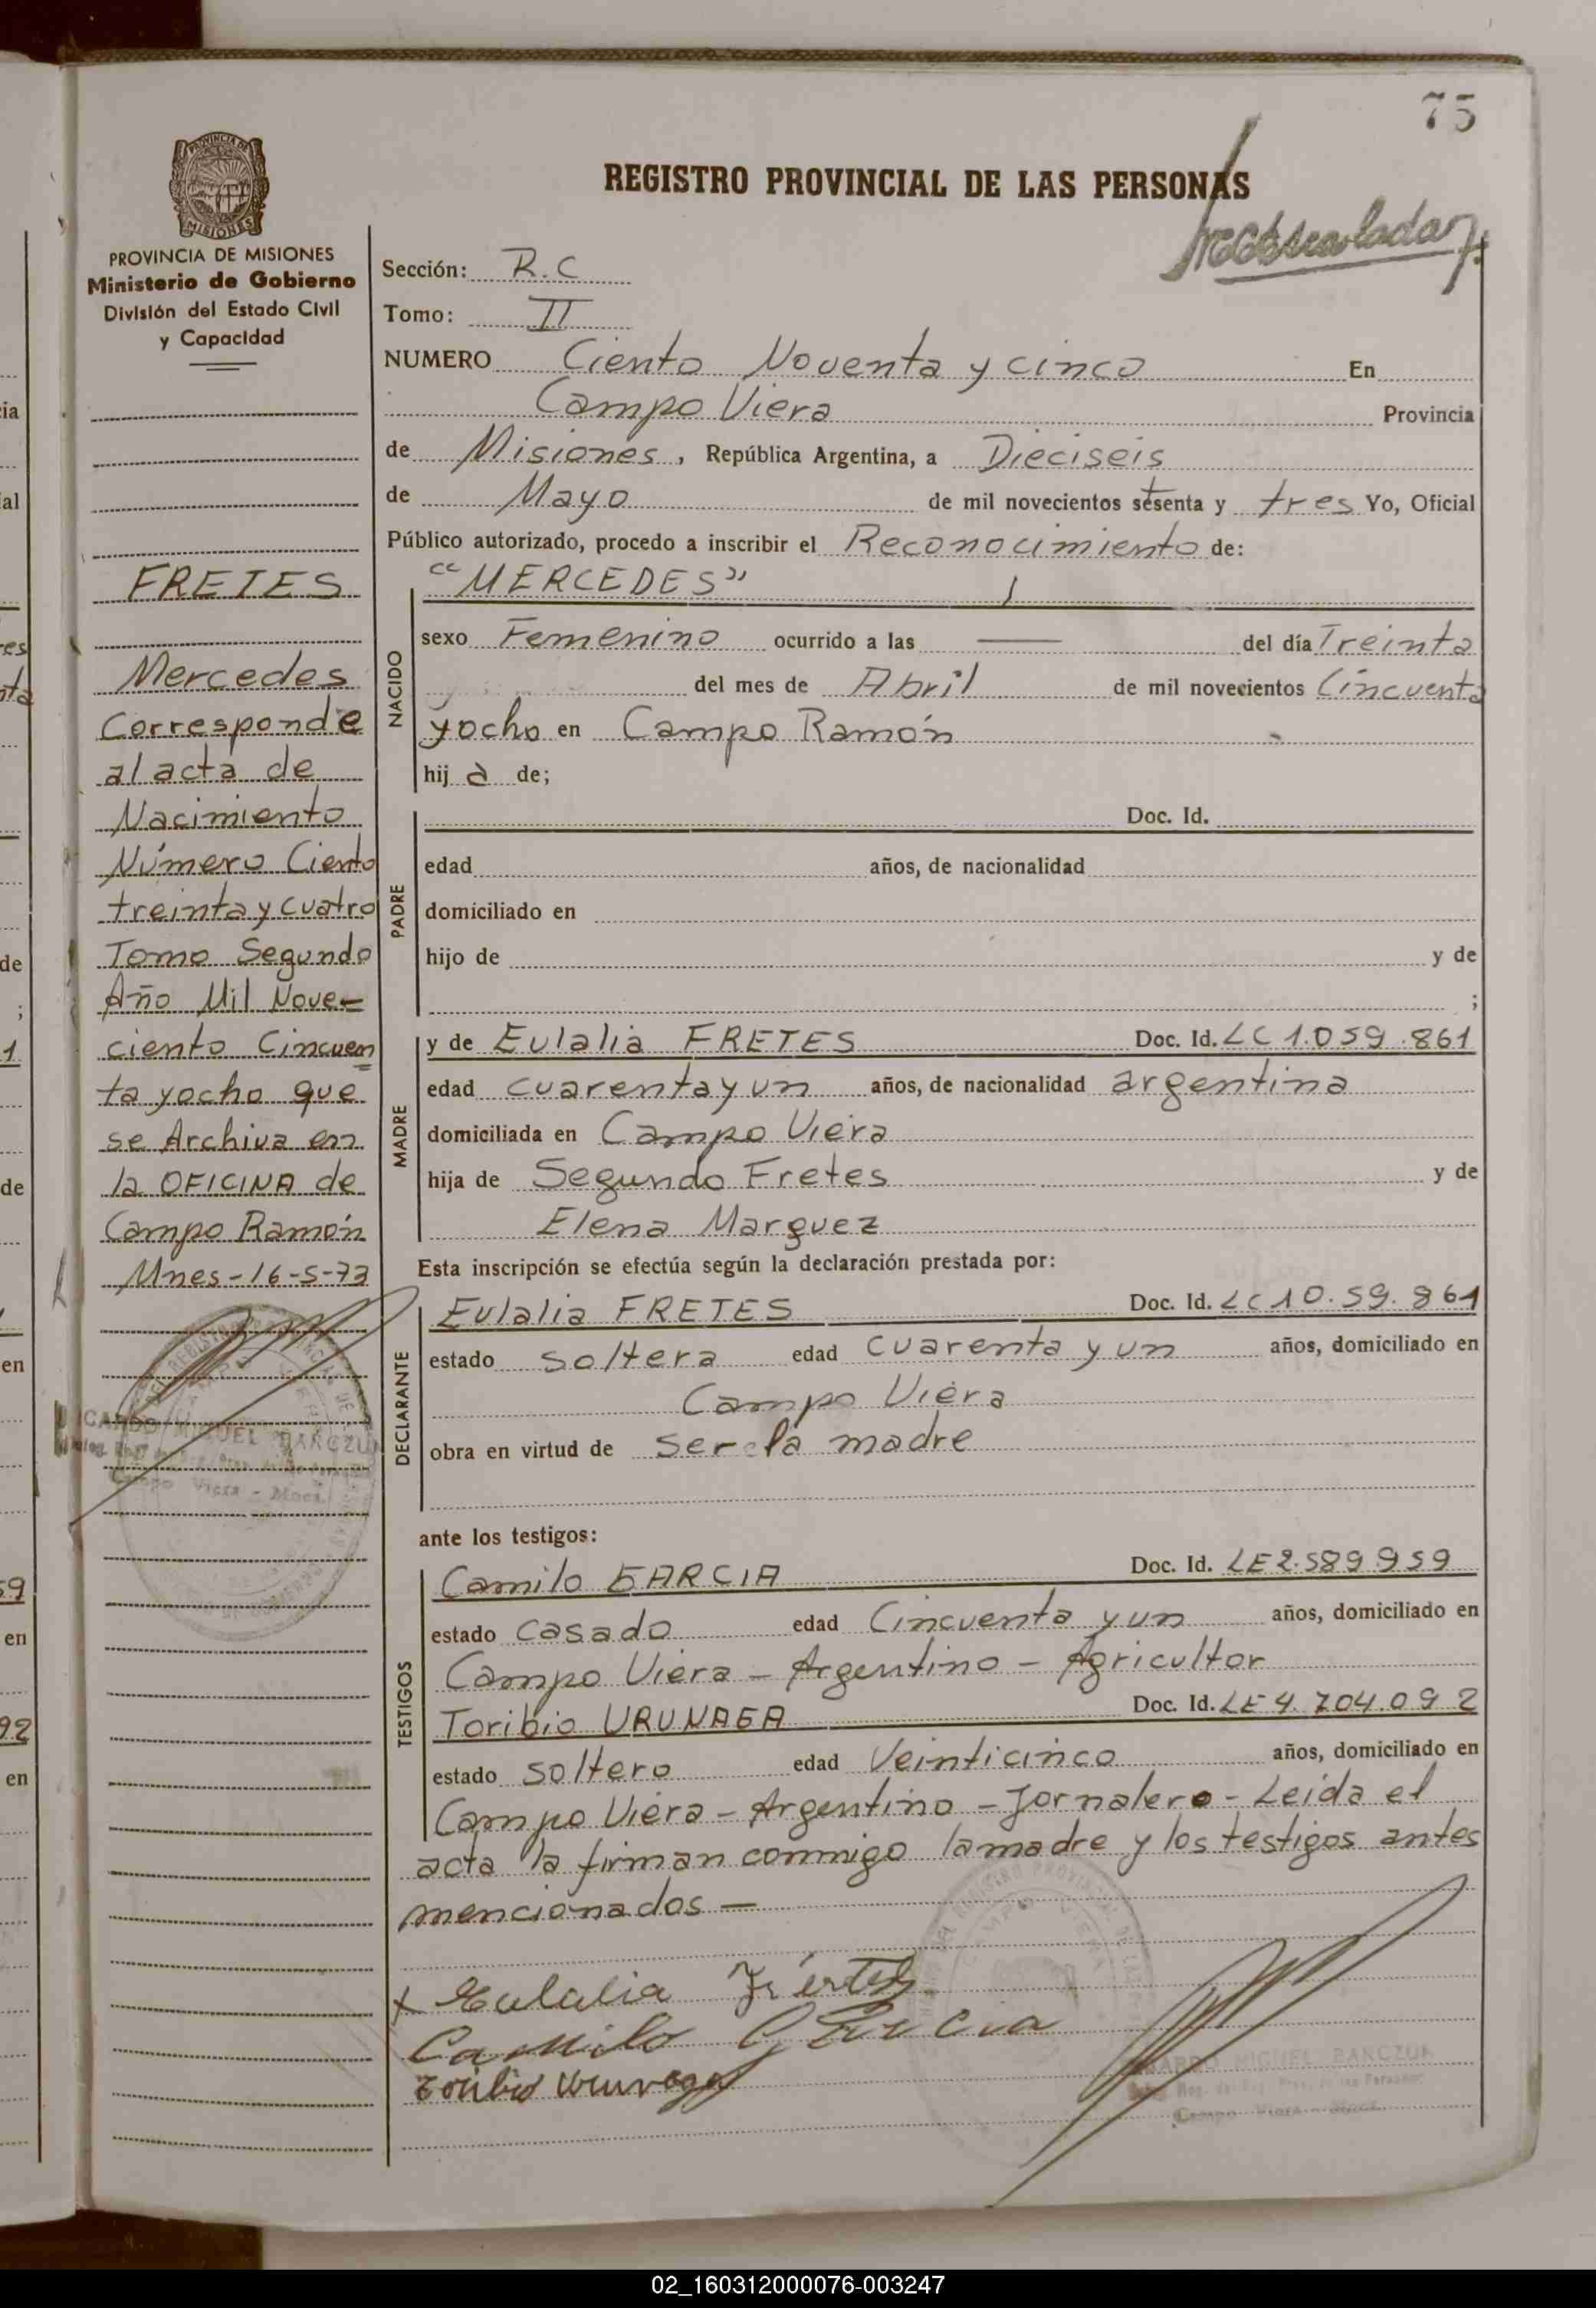 75
REGISTRO PROVINCIAL DE LAS PERSONAS
PROVINCIA DE
MISIONES
PROVINCIA DE MISIONES
Ministerio de Gobierno
División del Estado Civil
y Capacidad
FRETES
Mercedes
Corresponde
al acta de
Nacimiento
Número Ciento
treinta y cuatro
Tomo Segundo
Año Mil Nove=
ciento Cincuen
ta yocho que
se Archiva en
la OFICINA de
Campo Ramón
Mnes-16-5-73
Sección: R.C
Tomo: II
NUMERO Ciento Noventa y cinco En
Campo Viera Provincia
de Misiones, República Argentina, a Dieciseis
de Mayo de mil novecientos setenta y tres Yo, Oficial
Público autorizado, procedo a inscribir el Reconocimiento de:
NACIDO
"MERCEDES"
sexo Femenino ocurrido a las — del día Treinta
del mes de Abril de mil novecientos Cincuenta
yocho en Campo Ramón
hija de;
PADRE
Doc. Id.
edad años, de nacionalidad
domiciliado en
hijo de y de
;
MADRE
y de Eulalia FRETES Doc. Id. LC 1.059.861
edad cuarenta y un años, de nacionalidad argentina
domiciliada en Campo Viera
hija de Segundo Fretes y de
Elena Marquez
Esta inscripción se efectúa según la declaración prestada por:
DECLARANTE
Eulalia FRETES Doc. Id. LC 10.59.861
estado soltera edad cuarenta y un años, domiciliado en
Campo Viera
obra en virtud de ser la madre
ante los testigos:
TESTIGOS
Camilo GARCIA Doc. Id. LE 2.589.959
estado casado edad Cincuenta y un años, domiciliado en
Campo Viera - Argentino - Agricultor
Toribio URUNAGA Doc. Id. LE 4.704.092
estado soltero edad Veinticinco años, domiciliado en
Campo Viera - Argentino - Jornalero - Leida el
acta la firman conmigo la madre y los testigos antes
mencionados —
x Eulalia
Camilo Garcia
Toribio Urunaga
MIGUEL BARCZUK
Campo Viera
02_160312000076-003247